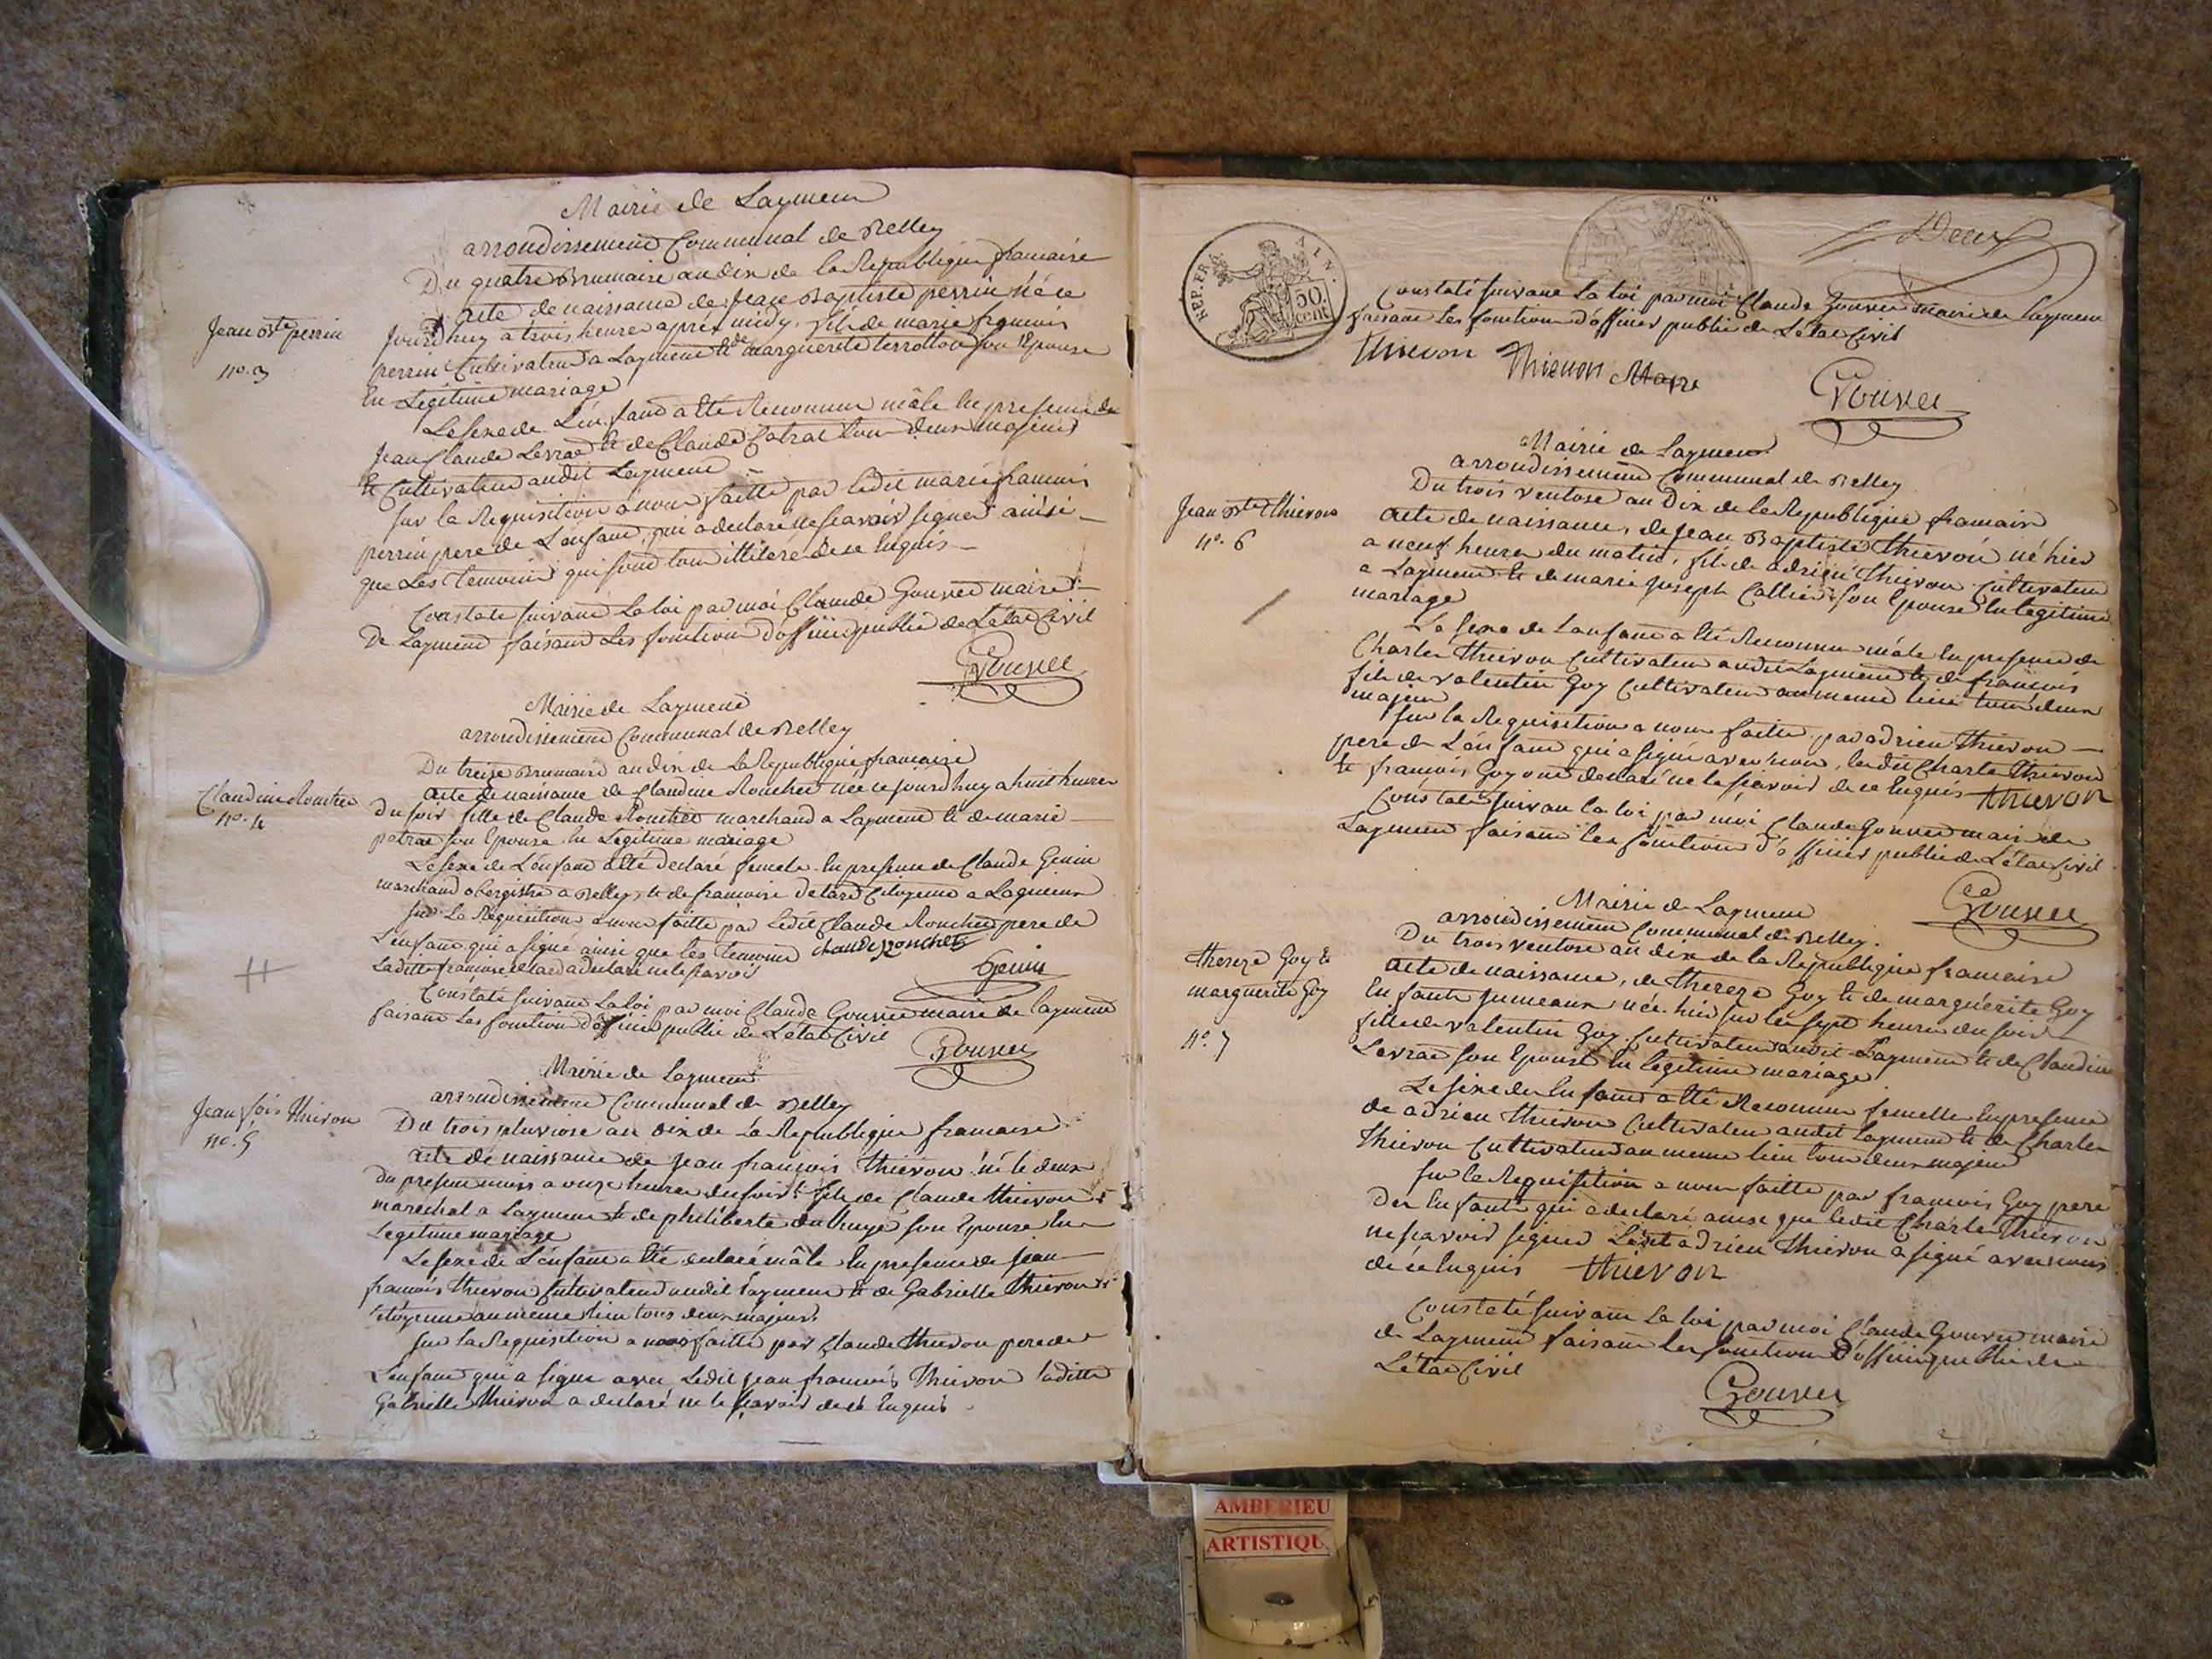 Mairie de Laymen
arrondissement Communal de Belley
Du quatre Brumaire an dix de la Republique francaise
Jean Bte perrin
no. 3
acte de naissance de Jean Baptiste perrin né ce
Jourdhuy a trois heure aprés midy. fils de marie francois
perrin Cultivateur a Layment et de marguerite terrollon son Epouse
En Legitime mariage
Le sexe de L'enfand a Eté Reconnu mâle En presence de
Jean Claude Levrat et de Claude Catrat tous deux majeurs
et Cultivateur audit Layment
sur la Requisition a nous faitte par ledit marie francois
perrin pere de L'enfant, qui a declaré ne scavoir signer ainsi
que Les temoins qui sond tous illiteré de ce Enquis
Constaté suivand La loi par moi Claude Gouvee maire
de Layment faisand Les fonction d'officier public de L'état Civil
Gouvee
Mairie de Layment
arrondissement Communal de Belley
Du treize Brumaire an dix de La Republique francaise
Claudine Ronchet
no. 4
acte de naissance de Claudine Ronchet née ce jourdhuy a huit heures
du soir fille de Claude Ronchet marchand a Layment et de marie
patrat son Epouse En Legitime mariage
Le sexe de L'enfand a Eté declaré femele En presence de Claude Genin
marchand obergiste a Belley, et de francoise delard Citoyenne a Lagnieux
sur La Requisition a nous faitte par Ledit Claude Ronchet pere de
L'enfant qui a signé ainsi que les temoins claude Ronchet
Laditte francoise delard a declaré ne le scavoir
Genin
Constaté suivant La loi par moi Claude Gouvee maire de layment
faisant Les fonction d'officier public de L'état Civil
Gouvee
Mairie de Layment
arrondissement Communal de Belley
Jean fois thievon
no. 5
Du trois pluviose an dix de la Republique francaise
acte de naissance de jean francois thievon né le deux
du presen mois a onze heures du soir fils de Claude thievon
marechal a Layment et de philiberte duthuye son Epouse En
Legitime mariage
Le sexe de L'enfant a Eté declaré mâle En presence de jean
francois thievon Cultivateur audit Layment et de Gabrielle thievon
Citoyenne au meme Lieu tous deux majeurs
sur la Requisition a nous faitte par Claude thievon pere de
L'enfant qui a signe avec Ledit jean francois thievon laditte
Gabrielle thievon a declaré ne le scavoir de cé Enquis
REP. FRA.
50.
cent
Deux
Constaté suivant La loi par moi Claude Gouvee maire de Layment
faisant Les fonction d'officier public de L'état Civil
thievon thievon Maire
Gouvee
Mairie de Layment
arrondissement Communal de Belley
Du trois ventose an Dix de la Republique francaise
Jean Bte thievon
no. 6
acte de naissance, de Jean Baptiste thievon né hier
a neuf heures du matin, fils de adrien thievon Cultivateur
a Layment et de marie joseph Callier son Epouse En Legitime
mariage
Le sexe de Lenfant a Eté Reconnu mâle En presence de
Charles thievon Cultivateur audit Layment et de francois
fils de valentin Goy Cultivateur au meme lieu tous deux
majeur
sur la Requisition a nous faitte par adrien thievon
pere de L'enfant qui a signé avec nous, ledit Charle thievon
et francois Goy ont declaré ne le scavoir de ce Enquis thievon
Constaté suivan la loi par moi Claude Gouvee maire de
Layment faisant les fonction d'officier public de L'état Civil
Gouvee
Mairie de Layment
arrondissement Communal de Belley.
Du trois ventose an dix de la Republique francaise
thereze Goy et
marguerite Goy
no. 7
acte de naissance, de thereze Goy et de marguerite Goy
Enfants jumeaux née hier sur les sept heures du soir
filles de valentin Goy Cultivateur audit Layment et de Claudine
Levrat son Epouse En legitime mariage
Le sexe des Enfants a Eté Reconnu femelle En presence
de adrien thievon Cultivateur audit Layment et de Charles
thievon Cultivateur au meme lieu tous deux majeur
sur la Requisition a nous faitte par francois Goy pere
des Enfants qui a declaré ainsi que ledit Charle thievon
ne scavoir signer Ledit adrien thievon a signé avec nous
de cé Enquis thievon
Constaté suivant La loi par moi Claude Gouvee maire
de Layment faisant les fonction d'officier public de
L'état Civil
Gouvee
AMBERIEU
ARTISTIQU